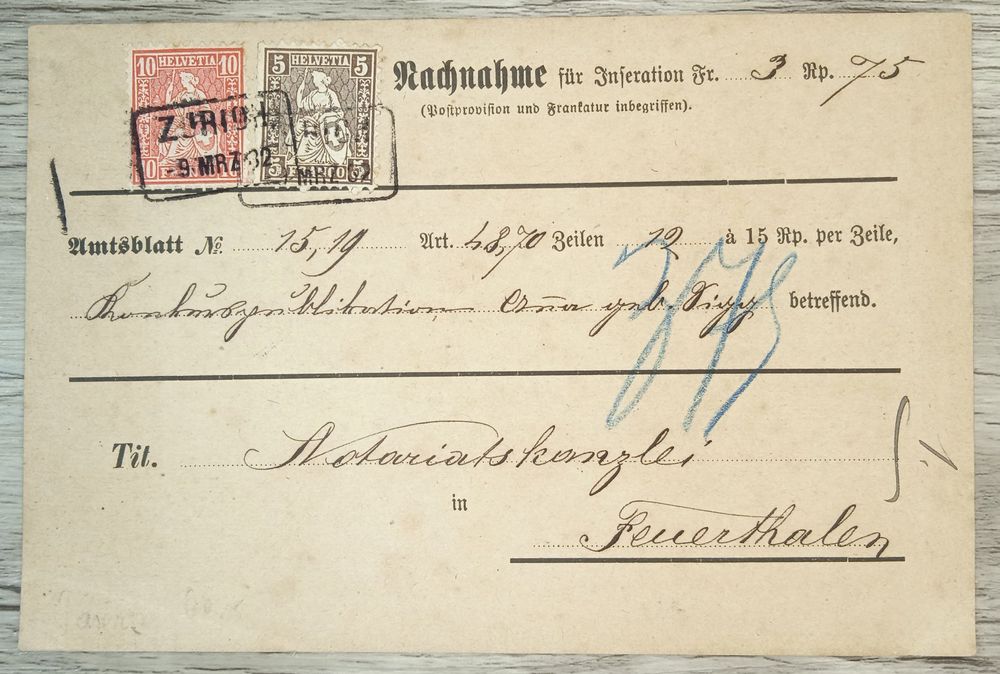 10 HELVETIA 10
5 HELVETIA 5
10 FRANCO 10
5 FRANCO
ZÜRICH
-9.MRZ 82
MRZ 82
Nachnahme für Inseration Fr. 3 Rp. 75
(Postprovision und Frankatur inbegriffen).
Amtsblatt № 15, 19 Art. 48, 70 Zeilen 12 à 15 Rp. per Zeile,
Konkurspublikation Anna geb. Sigg betreffend.
375
Tit. Notariatskanzlei
in
Feuerthalen